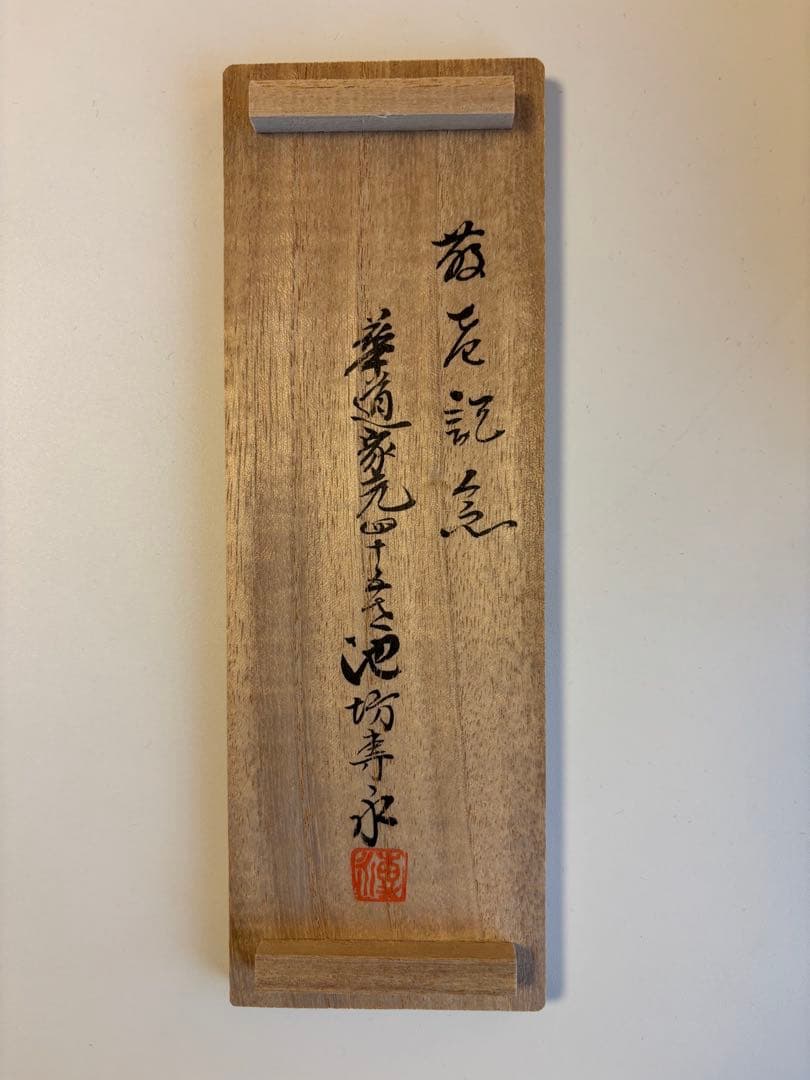 敬老記念
華道家元四十五世池坊専永